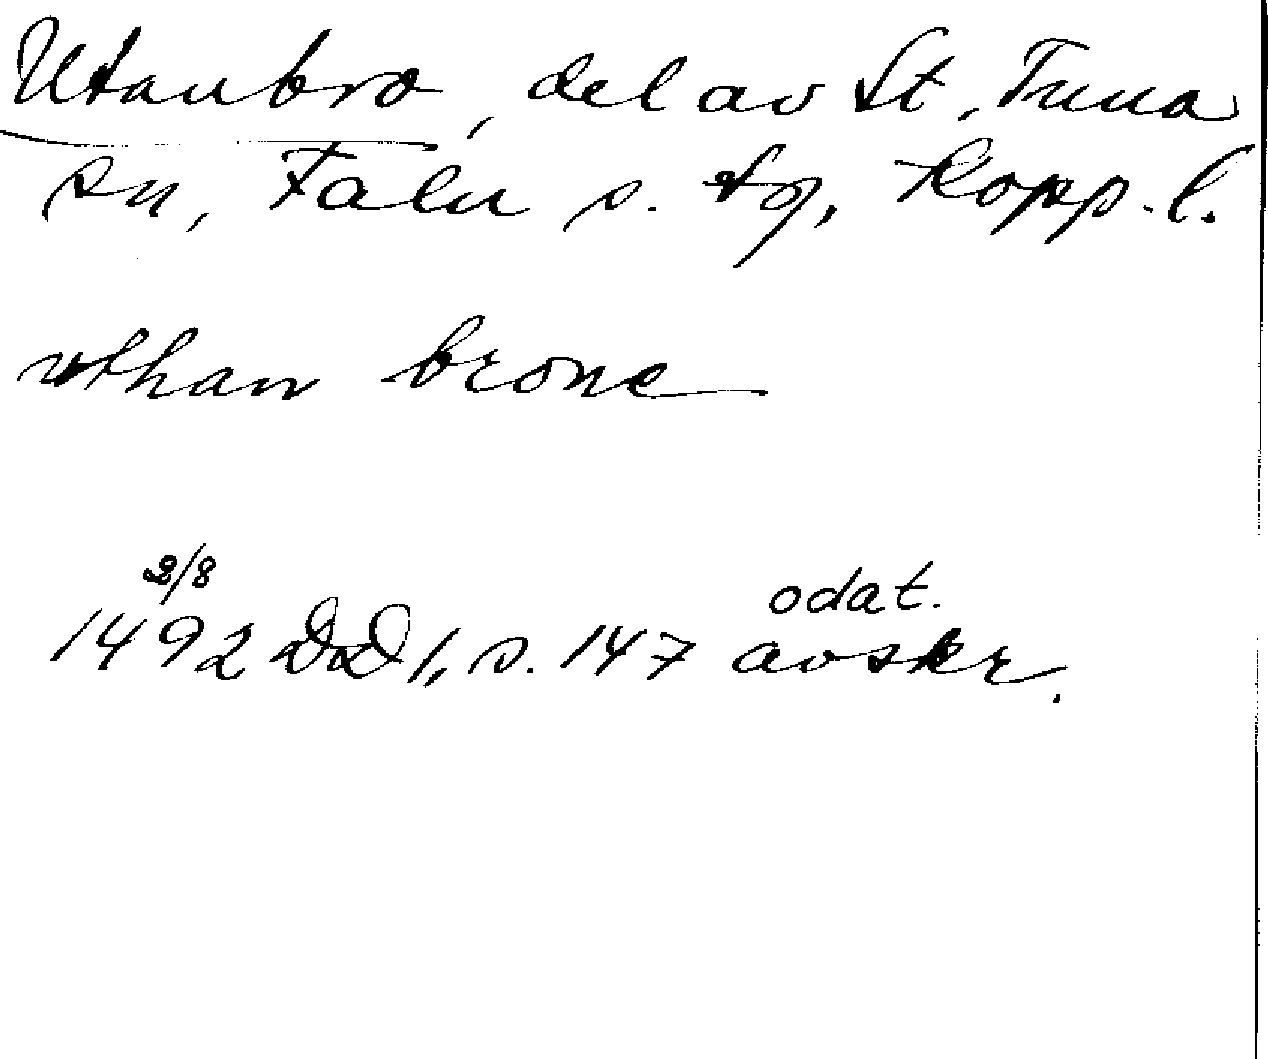 Utanbro, del av St. Tuna
sn, Falu s. tg, Kopp. l.
vthan brone
2/8
1492 DD 1, s. 147 odat. avskr.